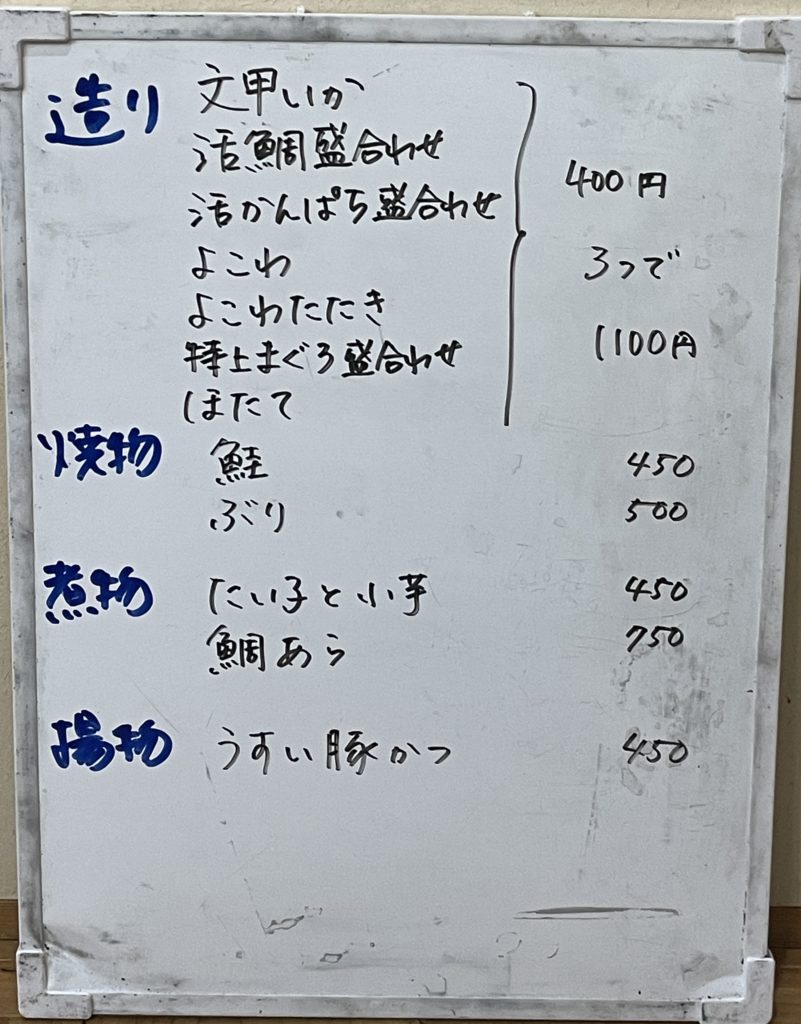 造り 文甲いか
活鯛盛合わせ
活かんぱち盛合わせ
よこわ
よこわたたき
特上まぐろ盛合わせ
ほたて
400円
3つで
1100円
焼物 鮭 450
ぶり 500
煮物 たい子と小芋 450
鯛あら 750
揚物 うすい豚かつ 450